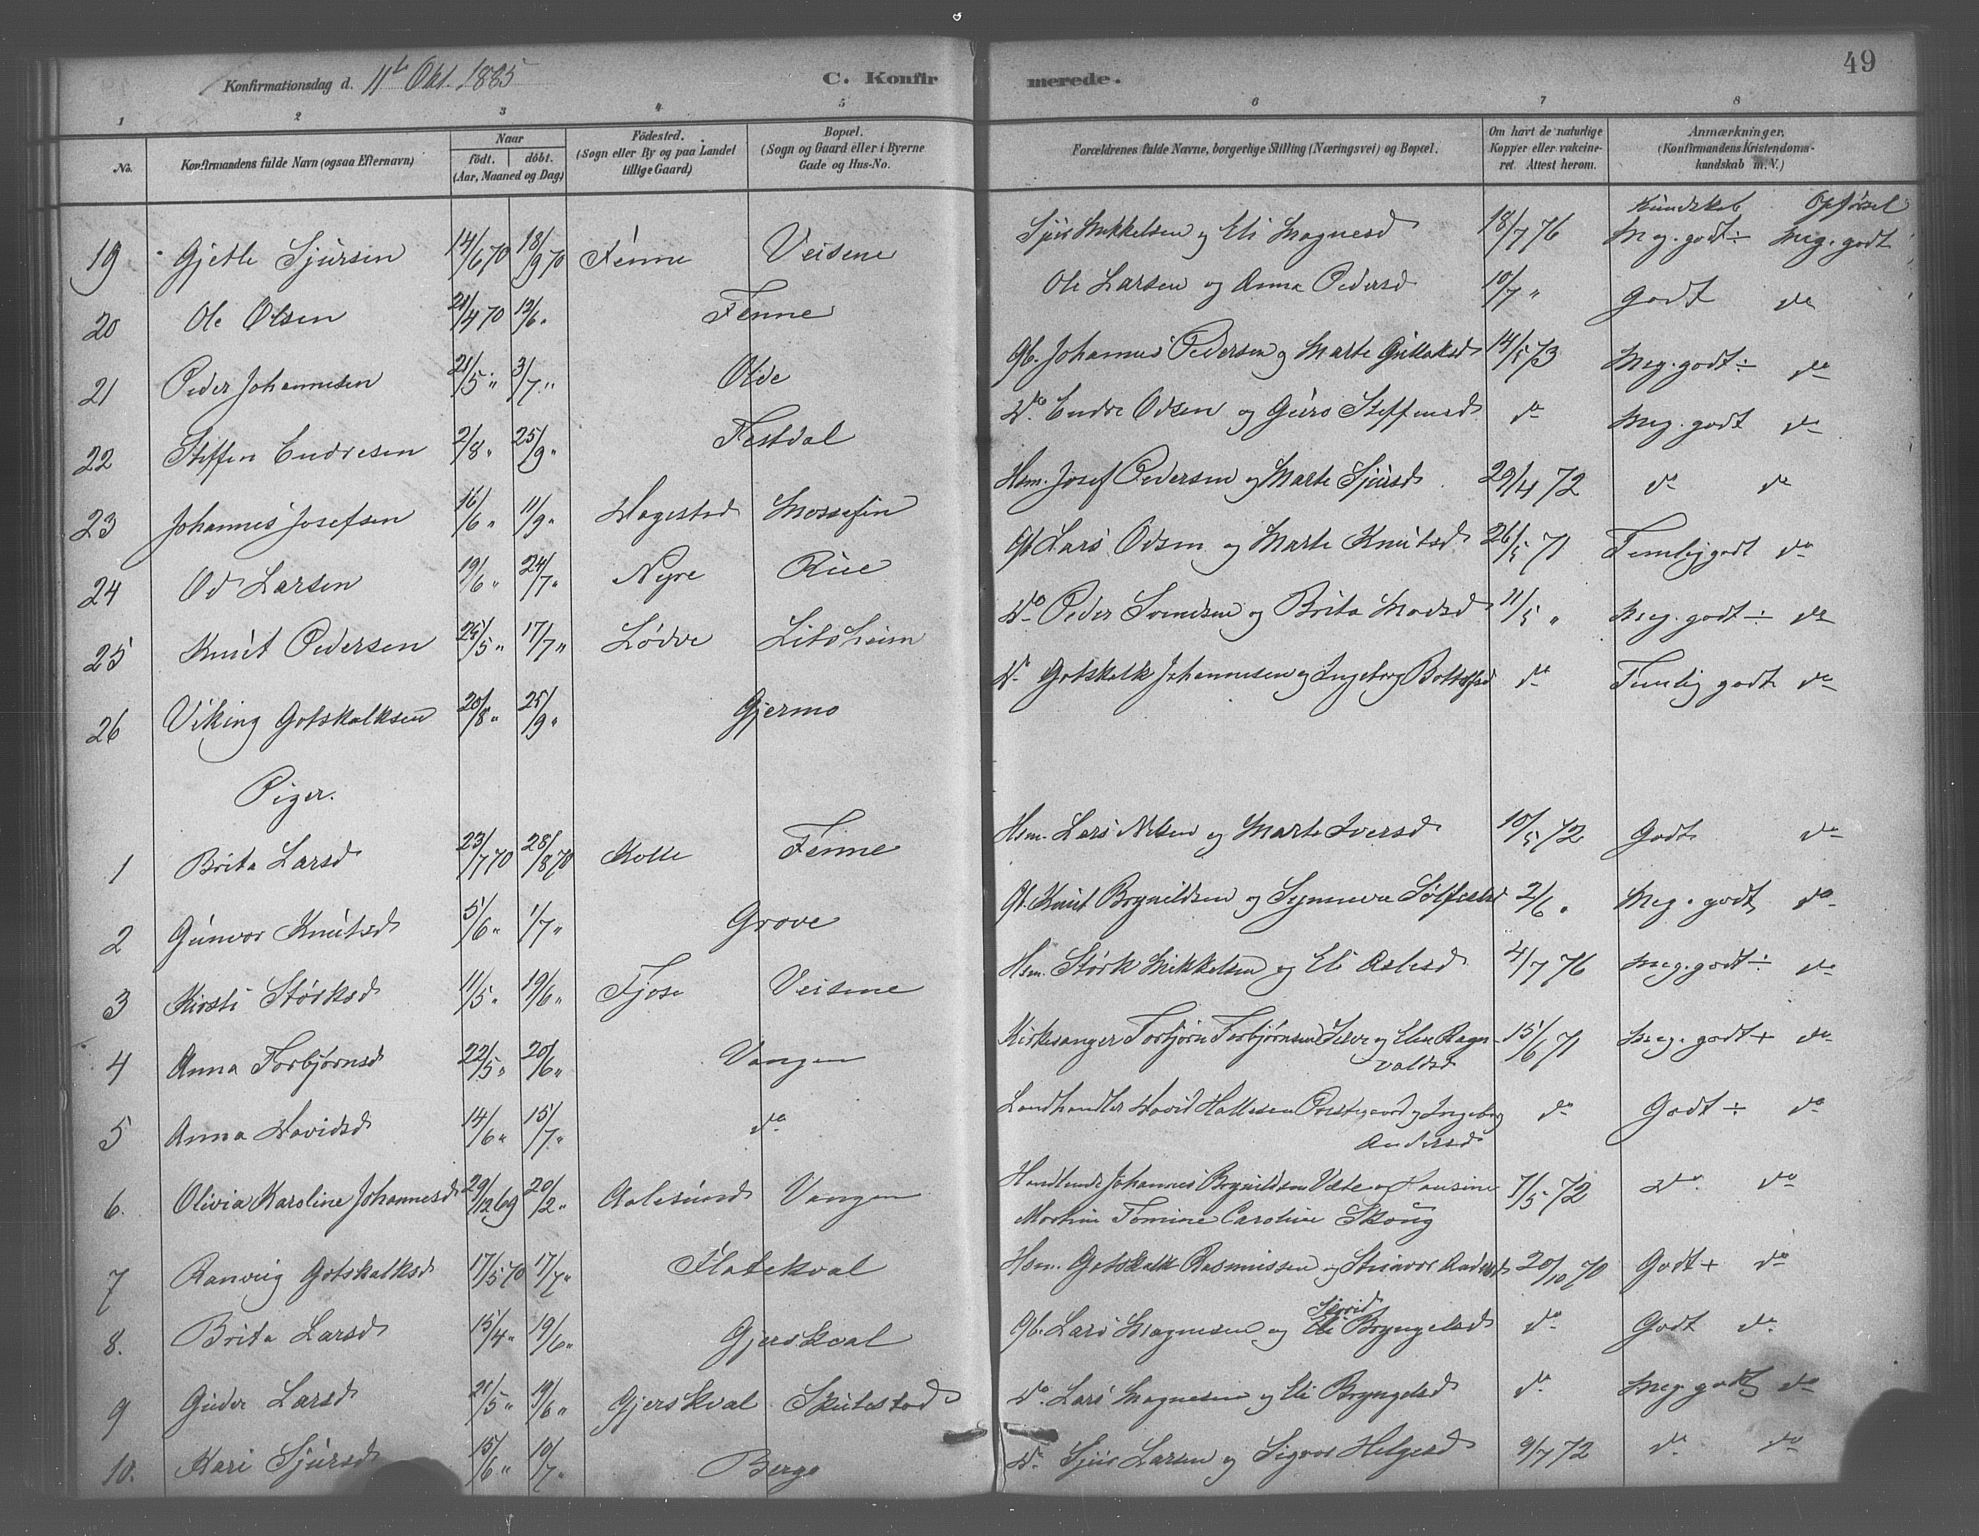 49
Konfirmationsdag d. 11te Okt. 1885 C. Konfirmerede.
1 2 3 4 5 6 7 8
No. Konfirmandens fulde Navn (ogsaa Efternavn) Naar födt. döbt. (Aar, Maaned og Dag) Födested. (Sogn eller By og paa Landet tillige Gaard) Bopæl. (Sogn og Gaard eller i Byerne Gade og Hus-No. Forældrenes fulde Navne, borgerlige Stilling (Næringsvei) og Bopæl. Om havt de naturlige Kopper eller vakcineret. Attest herom. Anmærkninger. (Konfirmandens Kristendomskundskab m. V.)
Kundskab Opførsel
19 Gjetle Sjursen 14/6 70 18/9 70 Fenne Veisene Sjur Mikkelsen og Eli Magnesd 18/7 76 Meg. godt ÷ Meg. godt
20 Ole Olsen 21/4 70 12/6 " Fenne Ole Larsen og Anna Pedersd 10/7 " Godt do
21 Peder Johannesen 21/5 " 3/7 " Olde Gb. Johannes Pedersen og Marte Gullaksd 14/5 73 Meg. godt ÷ do
22 Steffen Endresen 2/8 " 25/9 " Festdal Do Endre Odsen og Guro Steffensd do Meg. godt do
23 Johannes Josefsen 16/6 " 11/9 " Hagestad Mossefin Hsm. Josef Pedersen og Marte Sjursd 29/4 72 do do
24 Od Larsen 19/6 " 24/7 " Nyre Rue Gb Lars Odsen og Marte Knutsd 26/5 71 Temlig godt do
25 Knut Pedersen 25/5 " 17/7 " Lødve Litsheim Do Peder Svendsen og Brita Madsd 11/5 " Meg. godt ÷ do
26 Viking Gotskalksen 20/8 " 25/9 " Gjermo Do Gotskalk Johannesen og Ingeborg Botolfsd do Temlig godt do
Piger.
1 Brita Larsd 23/7 70 28/8 70 Kolle Fenne Hsm. Lars Nelsen og Marte Iversd 10/5 72 Godt do
2 Gunvor Knutsd 5/6 " 1/7 " Grove Gb. Knut Brynildsen og Synneva Sølfestsd 2/6 " Meg. godt do
3 Kirsti Størksd 11/5 " 19/6 " Fjose Veisene Hsm. Størk Mikkelsen og Eli Aslesd 4/7 76 Meg. godt ÷ do
4 Anna Torbjørnsd 22/5 " 20/6 " Vangen Kirkesanger Torbjørn Torbjørnsen og Elin Ragn-
valdsd 15/6 71 Meg. godt + do
5 Anna Davidsd 14/6 " 15/7 " do Landhandler David Hallesen Prestegaard og Ingeborg
Andersd do Godt ÷ do
6. Olivia Karoline Johannesd 29/12 69 20/2 " Aalesund Vangen Handlende Johannes Brynildsen Væte og Hansine
Martine Tomine Caroline Skoug 7/5 72 Do do
7 Ranveig Gotskalksd 17/5 70 17/7 " Flatekval Hsm. Gotskalk Rasmussen og Steinvor Andersd 20/10 70 Godt + do
8. Brita Larsd 15/4 " 19/6 " Gjerskval Gb. Lars Magnesen og Eli Sjurid Bryngelsd do Godt do
9 Gudve Larsd 21/5 " 19/6 " Gjerskval Skutestad Do Lars Magnesen og Eli Bryngelsd do Meg godt do
10. Kari Sjursd 15/6 " 10/7 " Berge Do Sjur Larsen og Sigvor Helgesd 9/7 72 do do